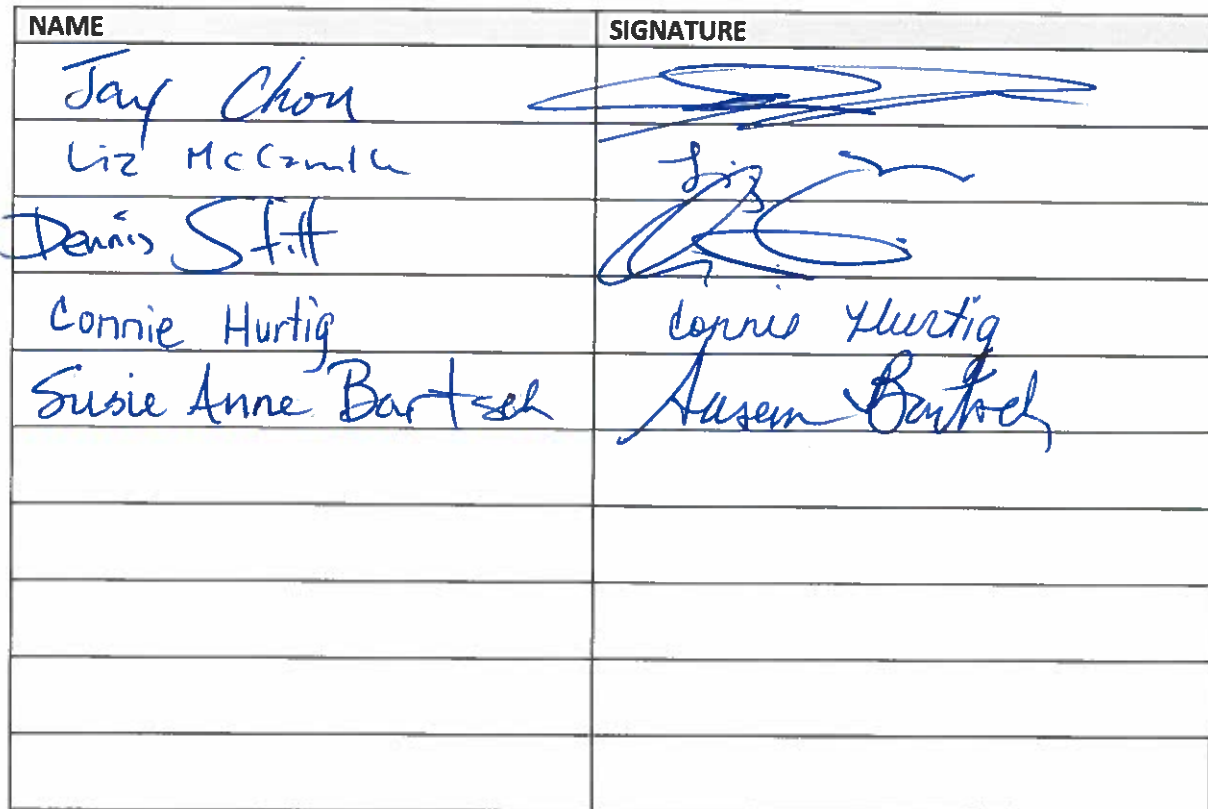 NAME SIGNATURE
Jay Chon
Liz Liz
Dennis Stitt
Connie Hurtig Connie Hurtig
Susie Anne Bartsch Susan Bartsch